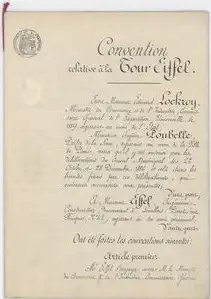 Convention
relative à la Tour Eiffel.
Entre Monsieur Edouard Lockroy,
Ministre du Commerce et de l'Industrie, Commis-
saire Général de l'Exposition Universelle de
1889, agissant au nom de l'Etat;
Monsieur Eugène Poubelle,
Préfet de la Seine, agissant au nom de la Ville
de Paris, ainsi qu'il est autorisé par les
délibérations du Conseil Municipal des 22
Octobre et 28 Décembre 1886 et
d'une part,
A Monsieur Eiffel, Ingénieur-
Constructeur, demeurant à Levallois-Perret, rue
Fouquet, Nº 42,
d'autre part,
Ont été faites les conventions suivantes:
Article premier.
Mr Eiffel s'engage envers Mr le Ministre
du Commerce et de l'Industrie, Commissaire Général